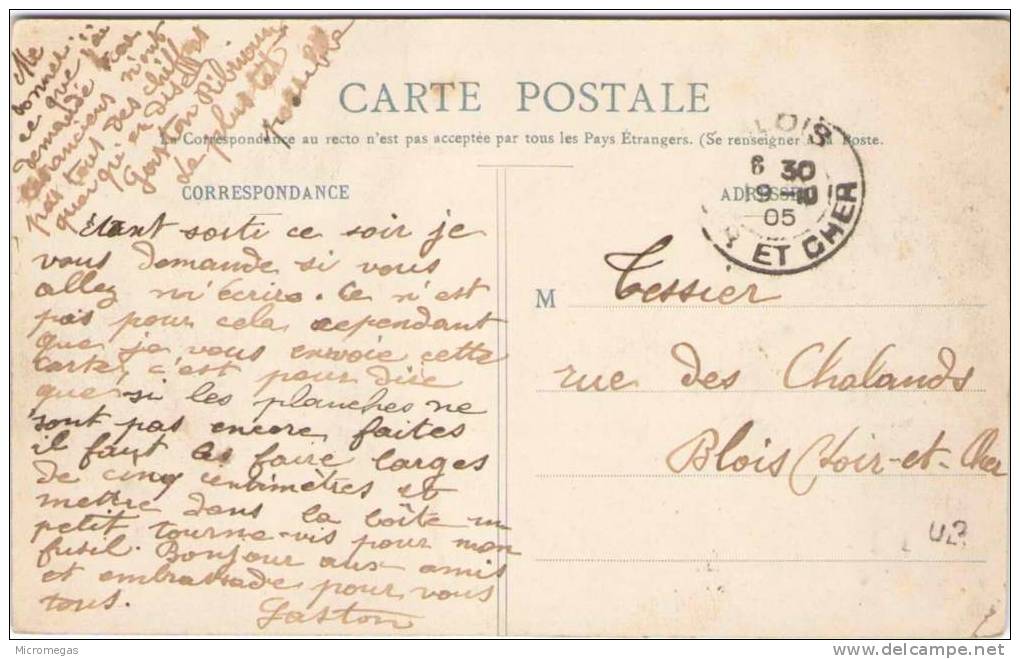 Me
donner si
ce que j'ai
demandé
pas tout
Gaston
Le plus tôt
possible
CARTE POSTALE
La Correspondance au recto n'est pas acceptée par tous les Pays Étrangers. (Se renseigner à la Poste.
CORRESPONDANCE
Etant sorti ce soir je
vous demande si vous
allez m'écrire. Ce n'est
pas pour cela cependant
que je vous envoie cette
carte, c'est pour dire
que si les planches ne
sont pas encore faites
il faut les faire larges
de cinq centimètres et
mettre dans la boîte un
petit tourne-vis pour mon
fusil. Bonjour aux amis
et embrassade pour vous
tous.
Gaston
ADRESSE
BLOIS
6 30
9 -10
05
R ET CHER
M Tessier
rue des Chalands
Blois (Loir-et-Cher
Micromegas
www.delcampe.net